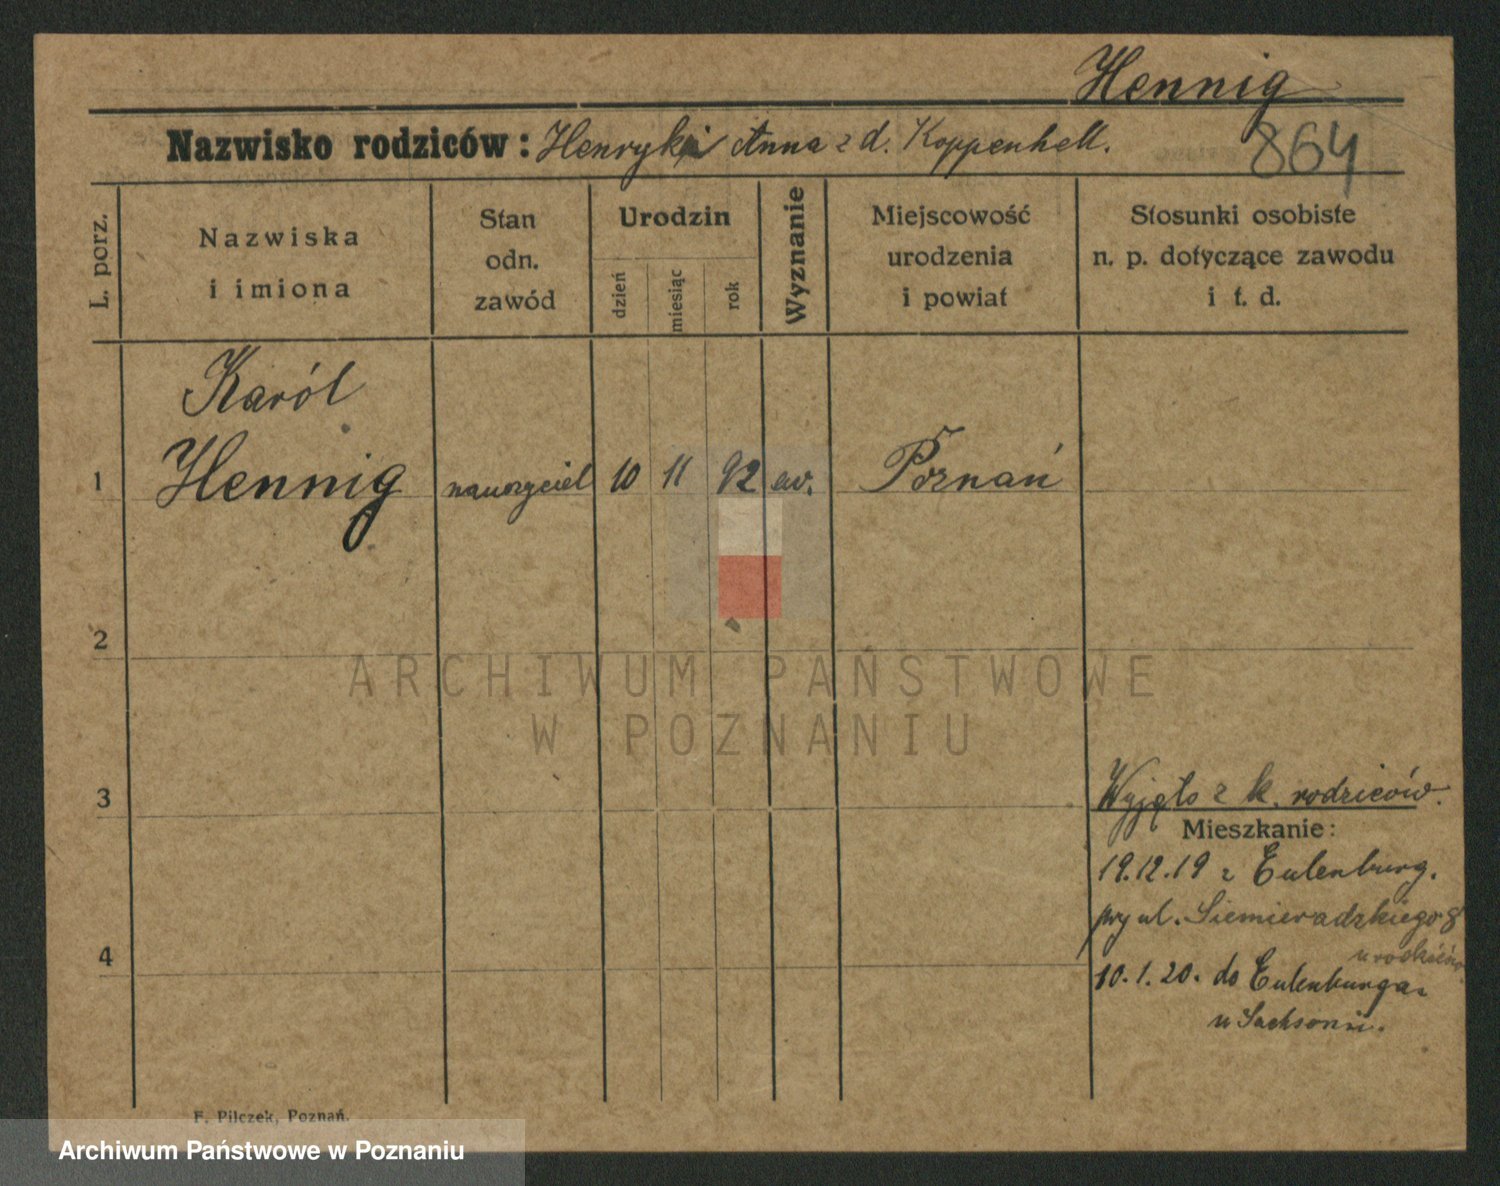 Hennig
864
Nazwisko rodziców: Henryk i Anna z d. Koppenhell.
L. porz.
Nazwiska
i imiona
Stan
odn.
zawód
Urodzin
dzień
miesiąc
rok
Wyznanie
Miejscowość
urodzenia
i powiat
Stosunki osobiste
n. p. dotyczące zawodu
i t. d.
Karól
1 Hennig nauczyciel 10 11 92 ew. Poznań
2
ARCHIWUM PAŃSTWOWE
W POZNANIU
3
Wyjęto z k. rodziców.
Mieszkanie:
19.12.19 z Eulenburg.
przy ul. Siemieradzkiego 8
u rodziców
4
10.1.20. do Eulenburga
w Saksonii.
F. Pilczek, Poznań.
Archiwum Państwowe w Poznaniu